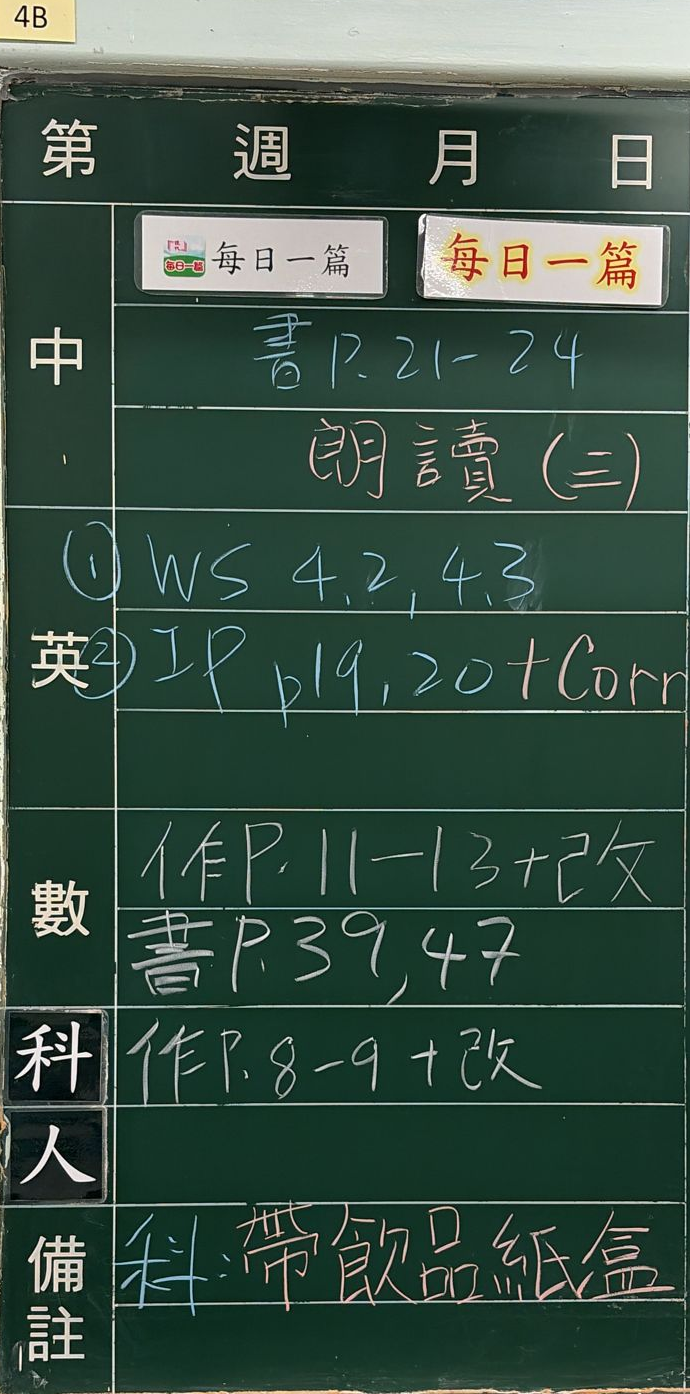 4B
第 週 月 日
中
每日一篇 每日一篇
書 P. 21-24
朗讀 (三)
英
① WS 4.2, 4.3
② IP p19, 20 + Corr
數
作P. 11-13+改
書P. 39, 47
科 作P. 8-9+改
人
備註
科: 帶飲品紙盒